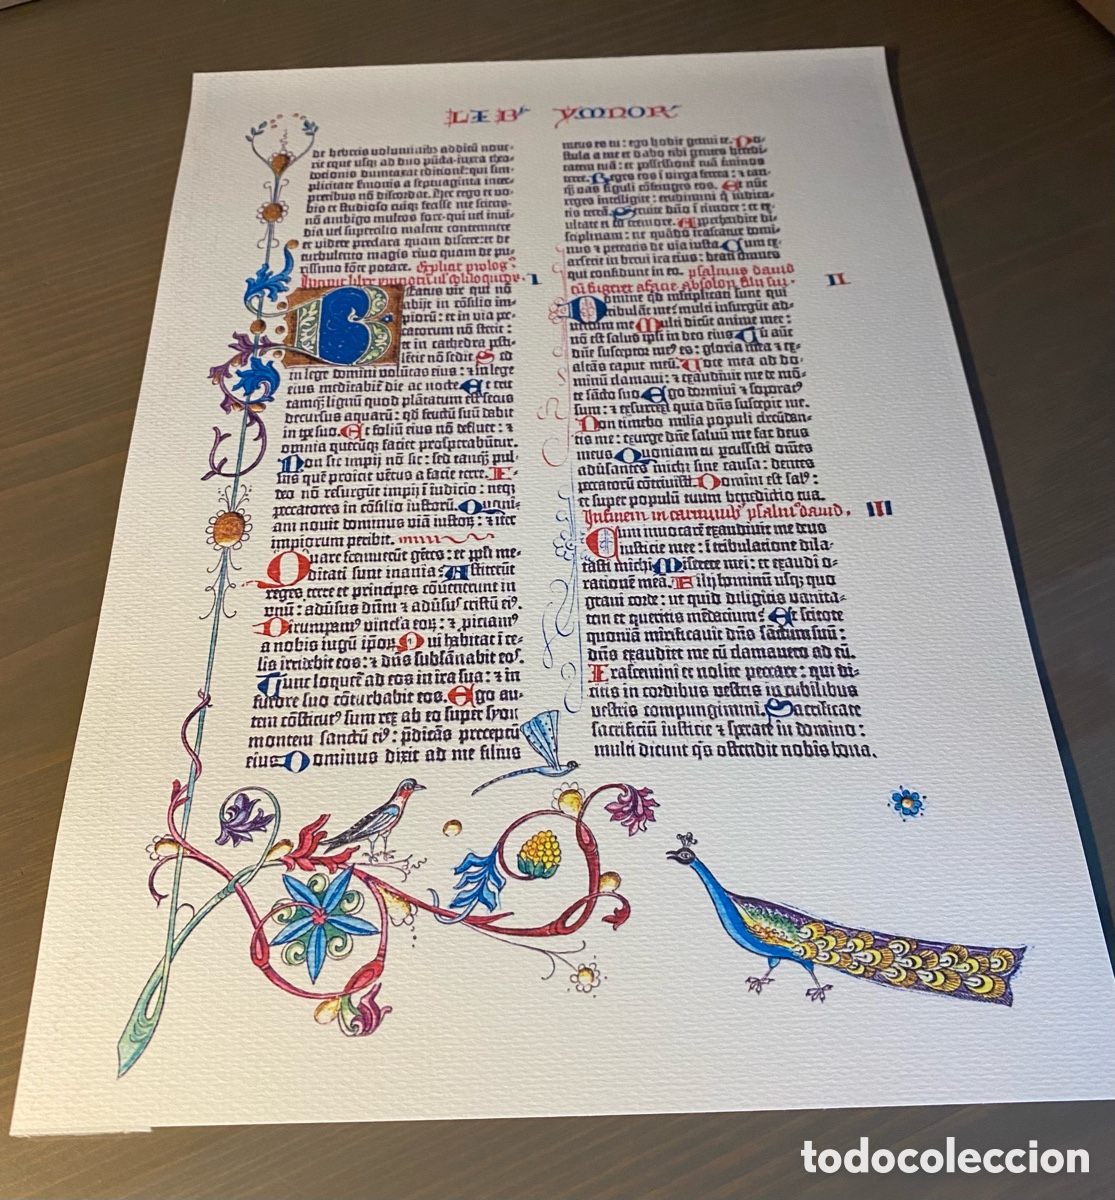 LIB YMNOR
de hebreis voluminibus addidum noue-
rit eque usq; ad duo puncta · iuxta theo-
docionis dumtaxat editione : qui sim-
plicitate sermonis a septuaginta inter-
pretibus nõ discordat. Hec ergo et vo-
bis et studioso cuiq; fecisse me sciens :
nõ ambigo multos fore · qui vel inui-
dia vel supercilio malent contemnere
et videre preclara quam discere : et de
turbulento magis riuo quam de pu-
rissimo fõte potare. Explicit prolog9
I
Beatus vir qui nõ
abijt in cõsilio im-
piorũ : et in via pec-
catorum nõ stetit :
et in cathedra pesti-
lẽcie nõ sedit. Sed
in lege domini volũtas eius : et in lege
eius meditabit̃ die ac nocte. Et erit
tamq̃ lignũ quod plãtatum est secus
decursus aquarũ : qd̃ fructũ suũ dabit
in tpe suo. Et foliũ eius nõ defluet : et
omnia quecũq; faciet prosperabũtur.
Non sic impij nõ sic : sed tanq̃ pul-
uis quẽ proicit vẽtus a facie terre. I-
deo nõ resurgũt impij ĩ iudicio : neq;
peccatores in cõsilio iustorũ. Quoni-
am nouit dominus viã iustorꝝ : et iter
impiorum peribit.
Quare fremuerũt gẽtes : et ppli me-
ditati sunt inania? Astiterũt
reges terre et principes cõuenerunt in
vnũ : adũsus dñm et adũsus cristũ ei9.
Dirumpam9 vincla eorꝝ : et piciam9
a nobis iugũ ipõrꝝ. Qui habitat ĩ ce-
lis irridebit eos : et dñs subsãnabit eos.
Tunc loquet̃ ad eos in ira sua : et in
furore suo cõturbabit eos. Ego au-
tem cõstitut9 sum rex ab eo super syon
montem sanctũ ei9 : p̃dicãs preceptũ
eius. Dominus dixit ad me filius
meus es tu : ego hodie genui te. Po-
stula a me et dabo tibi gentes heredi-
tatem tuã : et possessionẽ tuã t̃minos
terre. Reges eos ĩ virga ferrea : et tan-
q̃ vas figuli cõfringes eos. Et nũc
reges intelligite : erudimini q̃ iudica-
tis terrã. Seruite dño ĩ timore : et ex-
ultate ei cũ tremore. Apprehendite di-
sciplinam : ne quãdo irascatur domi-
nus et pereatis de via iusta. Cum ex-
arserit in breui ira eius : beati omnes
qui confidunt in eo. psalmus dauid
cũ fugeret a facie absolon filii sui. II
Domine qd̃ multiplicati sunt qui
tribulãt me? multi insurgũt ad-
uersum me. Multi dicũt anime mee :
nõ est salus ipsi in deo eius. Tu aut̃
dñe susceptor me9 es : gloria mea et ex-
altãs caput meũ. Voce mea ad do-
minũ clamaui : et exaudiuit me de mõ-
te sãcto suo. Ego dormiui et soporat9
sum : et exsurrexi quia dñs suscepit me.
Non timebo milia populi circũdan-
tis me : exurge dñe saluũ me fac deus
meus. Quoniam tu percussisti om̃es
adũsantes michi sine causa : dentes
peccatorũ cõtriuisti. Domini est sal9 :
et super populũ tuum benedictio tua.
In finem in carminib9 psalm9 dauid. III
Cum inuocarẽ exaudiuit me deus
iusticie mee : ĩ tribulatione dila-
tasti michi. Miserere mei : et exaudi o-
rationẽ meã. Filij hominũ usq; quo
graui corde : ut quid diligitis vanita-
tem et queritis mẽdacium? Et scitote
quoniã mirificauit dñs sãctum suũ :
dñs exaudiet me cũ clamauero ad eũ.
Irascemini et nolite peccare : qui di-
citis in cordibus vestris in cubilibus
vestris compungimini. Sacrificate
sacrificiũ iusticie et sperate in domino :
multi dicunt q̃s ostendit nobis bona.
todocoleccion